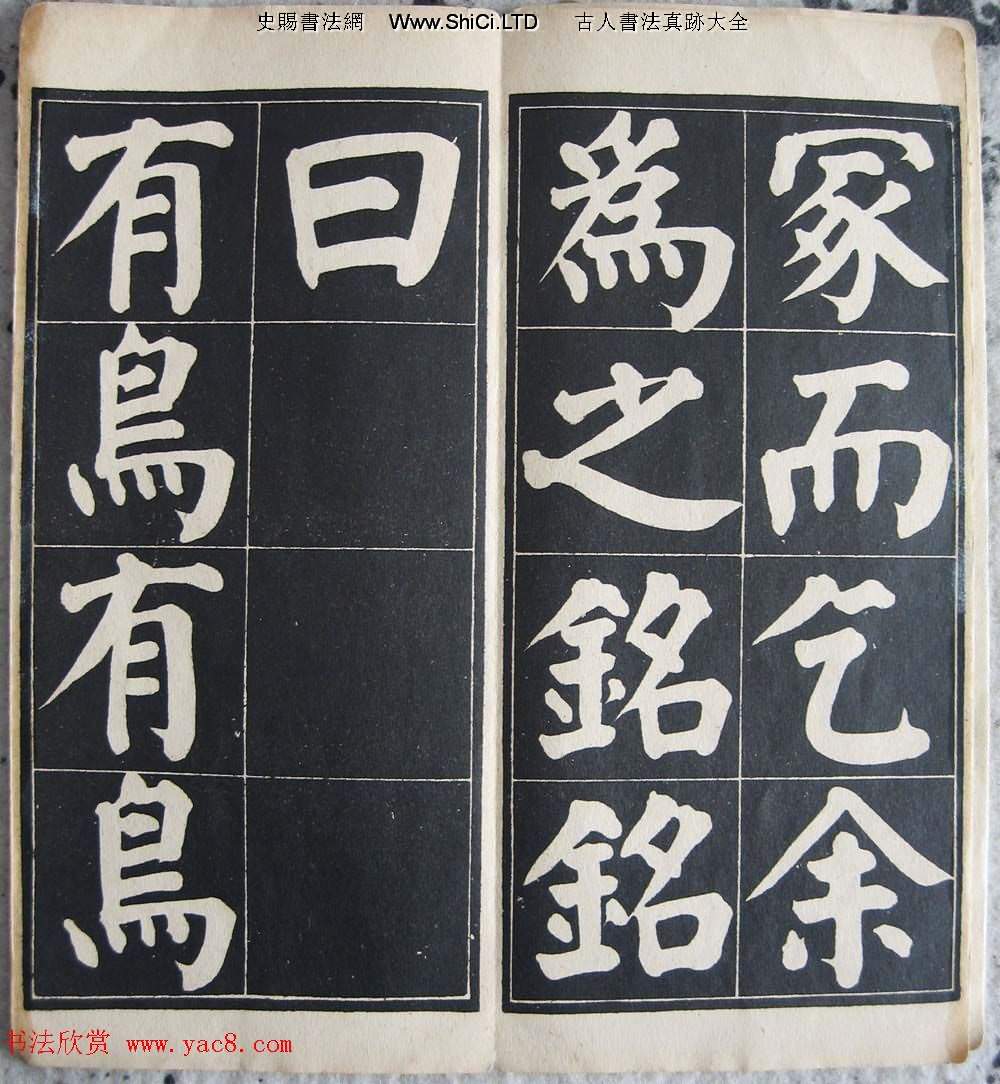 史賜書法網 Www.ShiCi.LTD 古人書法真跡大全
冢而乞余
為之銘銘
曰
有鳥有鳥
书法欣赏 www.yac8.com